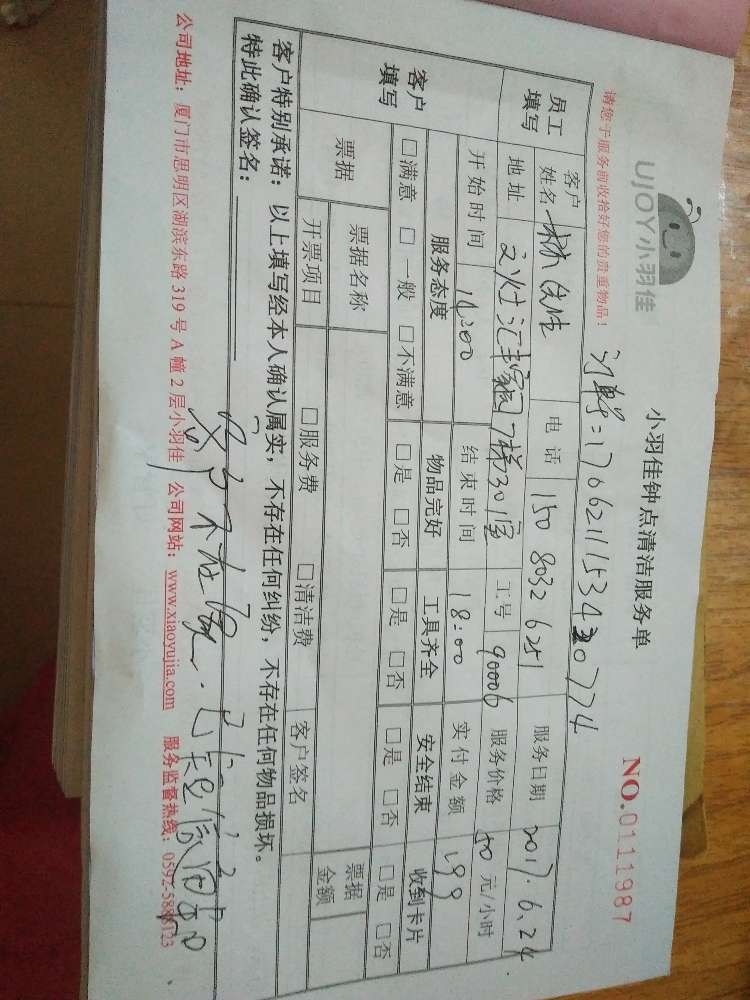 UJOY小羽佳
小羽佳钟点清洁服务单
NO.0111987
请您于服务前收拾好您的贵重物品！
员工填写
客户姓名 林 电话 150 8032 6251 服务日期 2017.6.24
地址 7梯301室 工号 90006 服务价格 50 元/小时
开始时间 14:00 结束时间 18:00 实付金额 199
客户填写
服务态度 物品完好 工具齐全 安全结束 收到卡片
□满意 □一般 □不满意 □是 □否 □是 □否 □是 □否 □是 □否
票据 票据名称 客户签名 票据金额
开票项目 □服务费 □清洁费
客户特别承诺：以上填写经本人确认属实，不存在任何纠纷，不存在任何物品损坏。
特此确认签名：
客户不在家.已
公司地址：厦门市思明区湖滨东路 319 号 A 幢 2 层小羽佳 公司网站：www.xiaoyujia.com 服务监督热线：0592-5888123